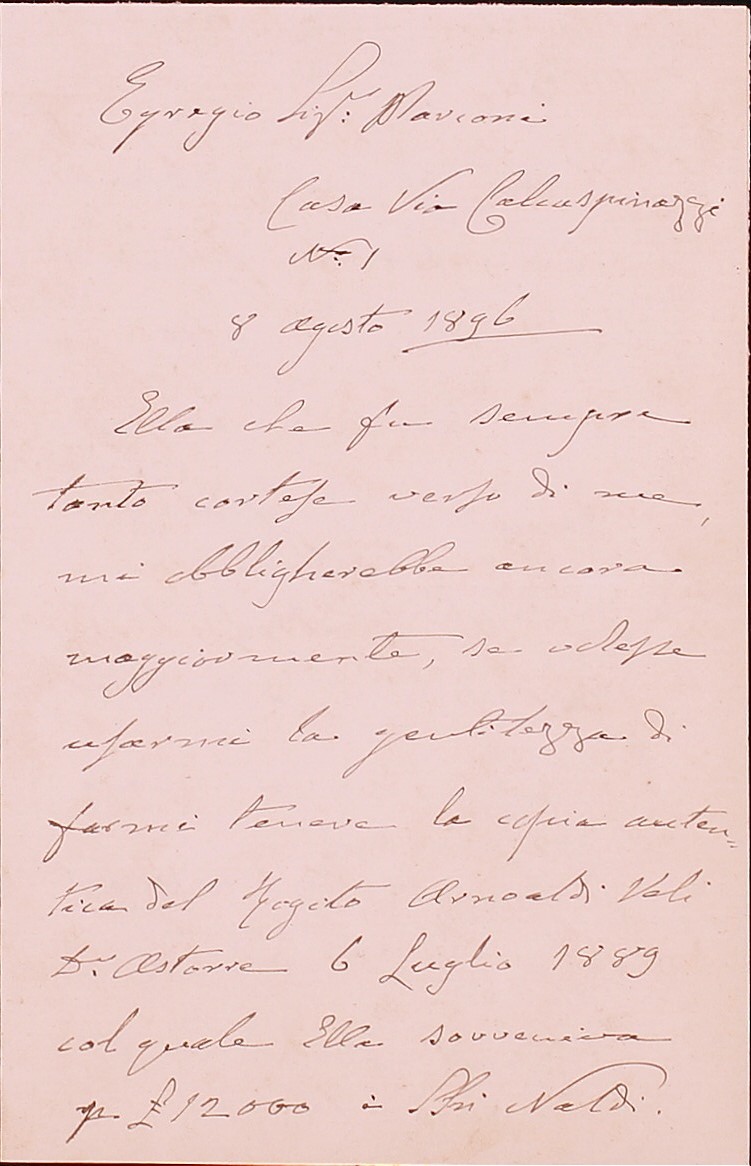 Egregio Sig.r Marconi
Casa Via Calcaspinazzi
N.o 1
8 agosto 1896
Ella che fu sempre
tanto cortese verso di me,
mi obbligherebbe ancora
maggiormente, se volesse
usarmi la gentilezza di
farmi tenere la copia auten=
tica del Rogito Arnoaldi Veli
D.r Astorre 6 Luglio 1889
col quale Ella sovveniva
p. £ 12000 i Sri Naldi.